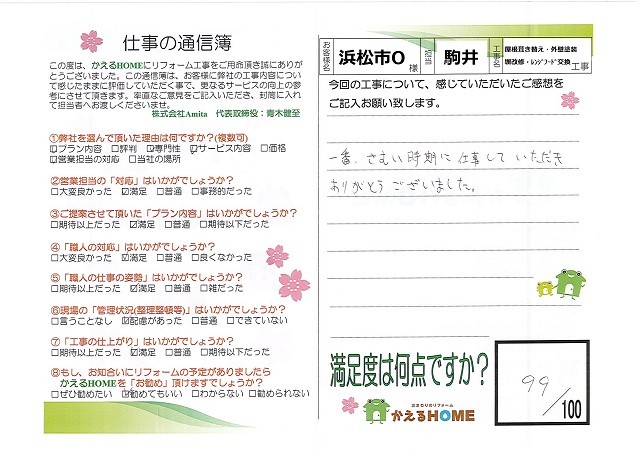 仕事の通信簿
この度は、かえるHOMEにリフォーム工事をご用命頂き誠にありが
とうございました。この通信簿は、お客様に弊社の工事内容につい
て感じたままに評価していただく事で、更なるサービスの向上の参
考にさせて頂きます。率直なご意見をご記入いただき、封筒に入れ
て担当者へお渡しくださいませ。
株式会社Amita 代表取締役:青木健至
①弊社を選んで頂いた理由は何ですか?(複数可)
☑プラン内容 □評判 ☑専門性 ☑サービス内容 □価格
☑営業担当の対応 □当社の場所
②営業担当の「対応」はいかがでしょうか?
□大変良かった ☑満足 □普通 □事務的だった
③ご提案させて頂いた「プラン内容」はいかがでしょうか?
□期待以上だった ☑満足 □普通 □期待以下だった
④「職人の対応」はいかがでしょうか?
□大変良かった ☑満足 □普通 □良くなかった
⑤「職人の仕事の姿勢」はいかがでしょうか?
□期待以上だった ☑満足 □普通 □雑だった
⑥現場の「管理状況(整理整頓等)」はいかがでしょうか?
□言うことなし ☑配慮があった □普通 □できていない
⑦「工事の仕上がり」はいかがでしょうか?
□期待以上だった ☑満足 □普通 □期待以下だった
⑧もし、お知合いにリフォームの予定がありましたら
かえるHOMEを「お勧め」頂けますでしょうか?
□ぜひ勧めたい ☑勧めてもいい □わからない □勧められない
お客様名 浜松市O 様 担当 駒井 工事名 屋根葺き替え・外壁塗装
棚改修・レンジフード交換 工事
今回の工事について、感じていただいたご感想を
ご記入お願い致します。
一番、さむい時期に仕事していただき
ありがとうございました。
満足度は何点ですか?
99/100
かえるHOME